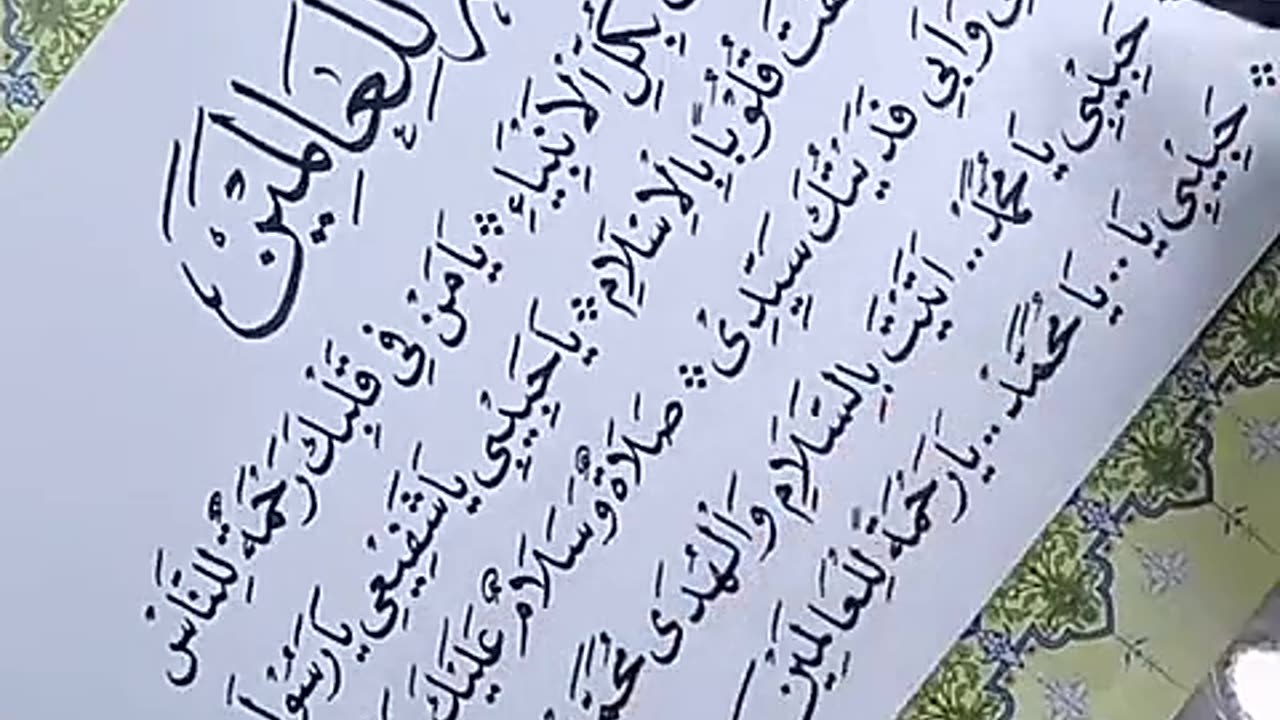 لِلْعَالَمِيْنَ
بِكُلِّ اَلْأَنْبِيَاءِ ۞ يَا مَنْ فِى قَلْبِكَ رَحْمَةٌ لِلنَّاسْ
قُلُوْبًا بِالْاِسْلَامِ ۞ يَا حَبِيْبِى يَا شَفِيْعِى يَا رَسُوْلَ
وَاَبِى فَدَيْتُكَ سَيِّدِىْ ۞ صَلَاةٌ وَسَلَامٌ عَلَيْكَ
حَبِيْبِى يَا مُحَمَّدْ.. اَتَيْتَ بِالسَّلَامِ وَالْهُدَى مُحَمَّدْ
۞ حَبِيْبِى يَا.. يَا مُحَمَّدْ.. يَا رَحْمَةً لِلْعَالَمِيْنَ